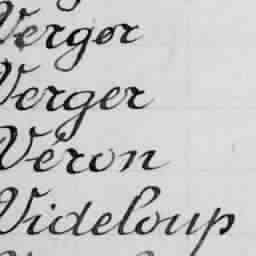 Vergor
Verger
Véron
Videloup